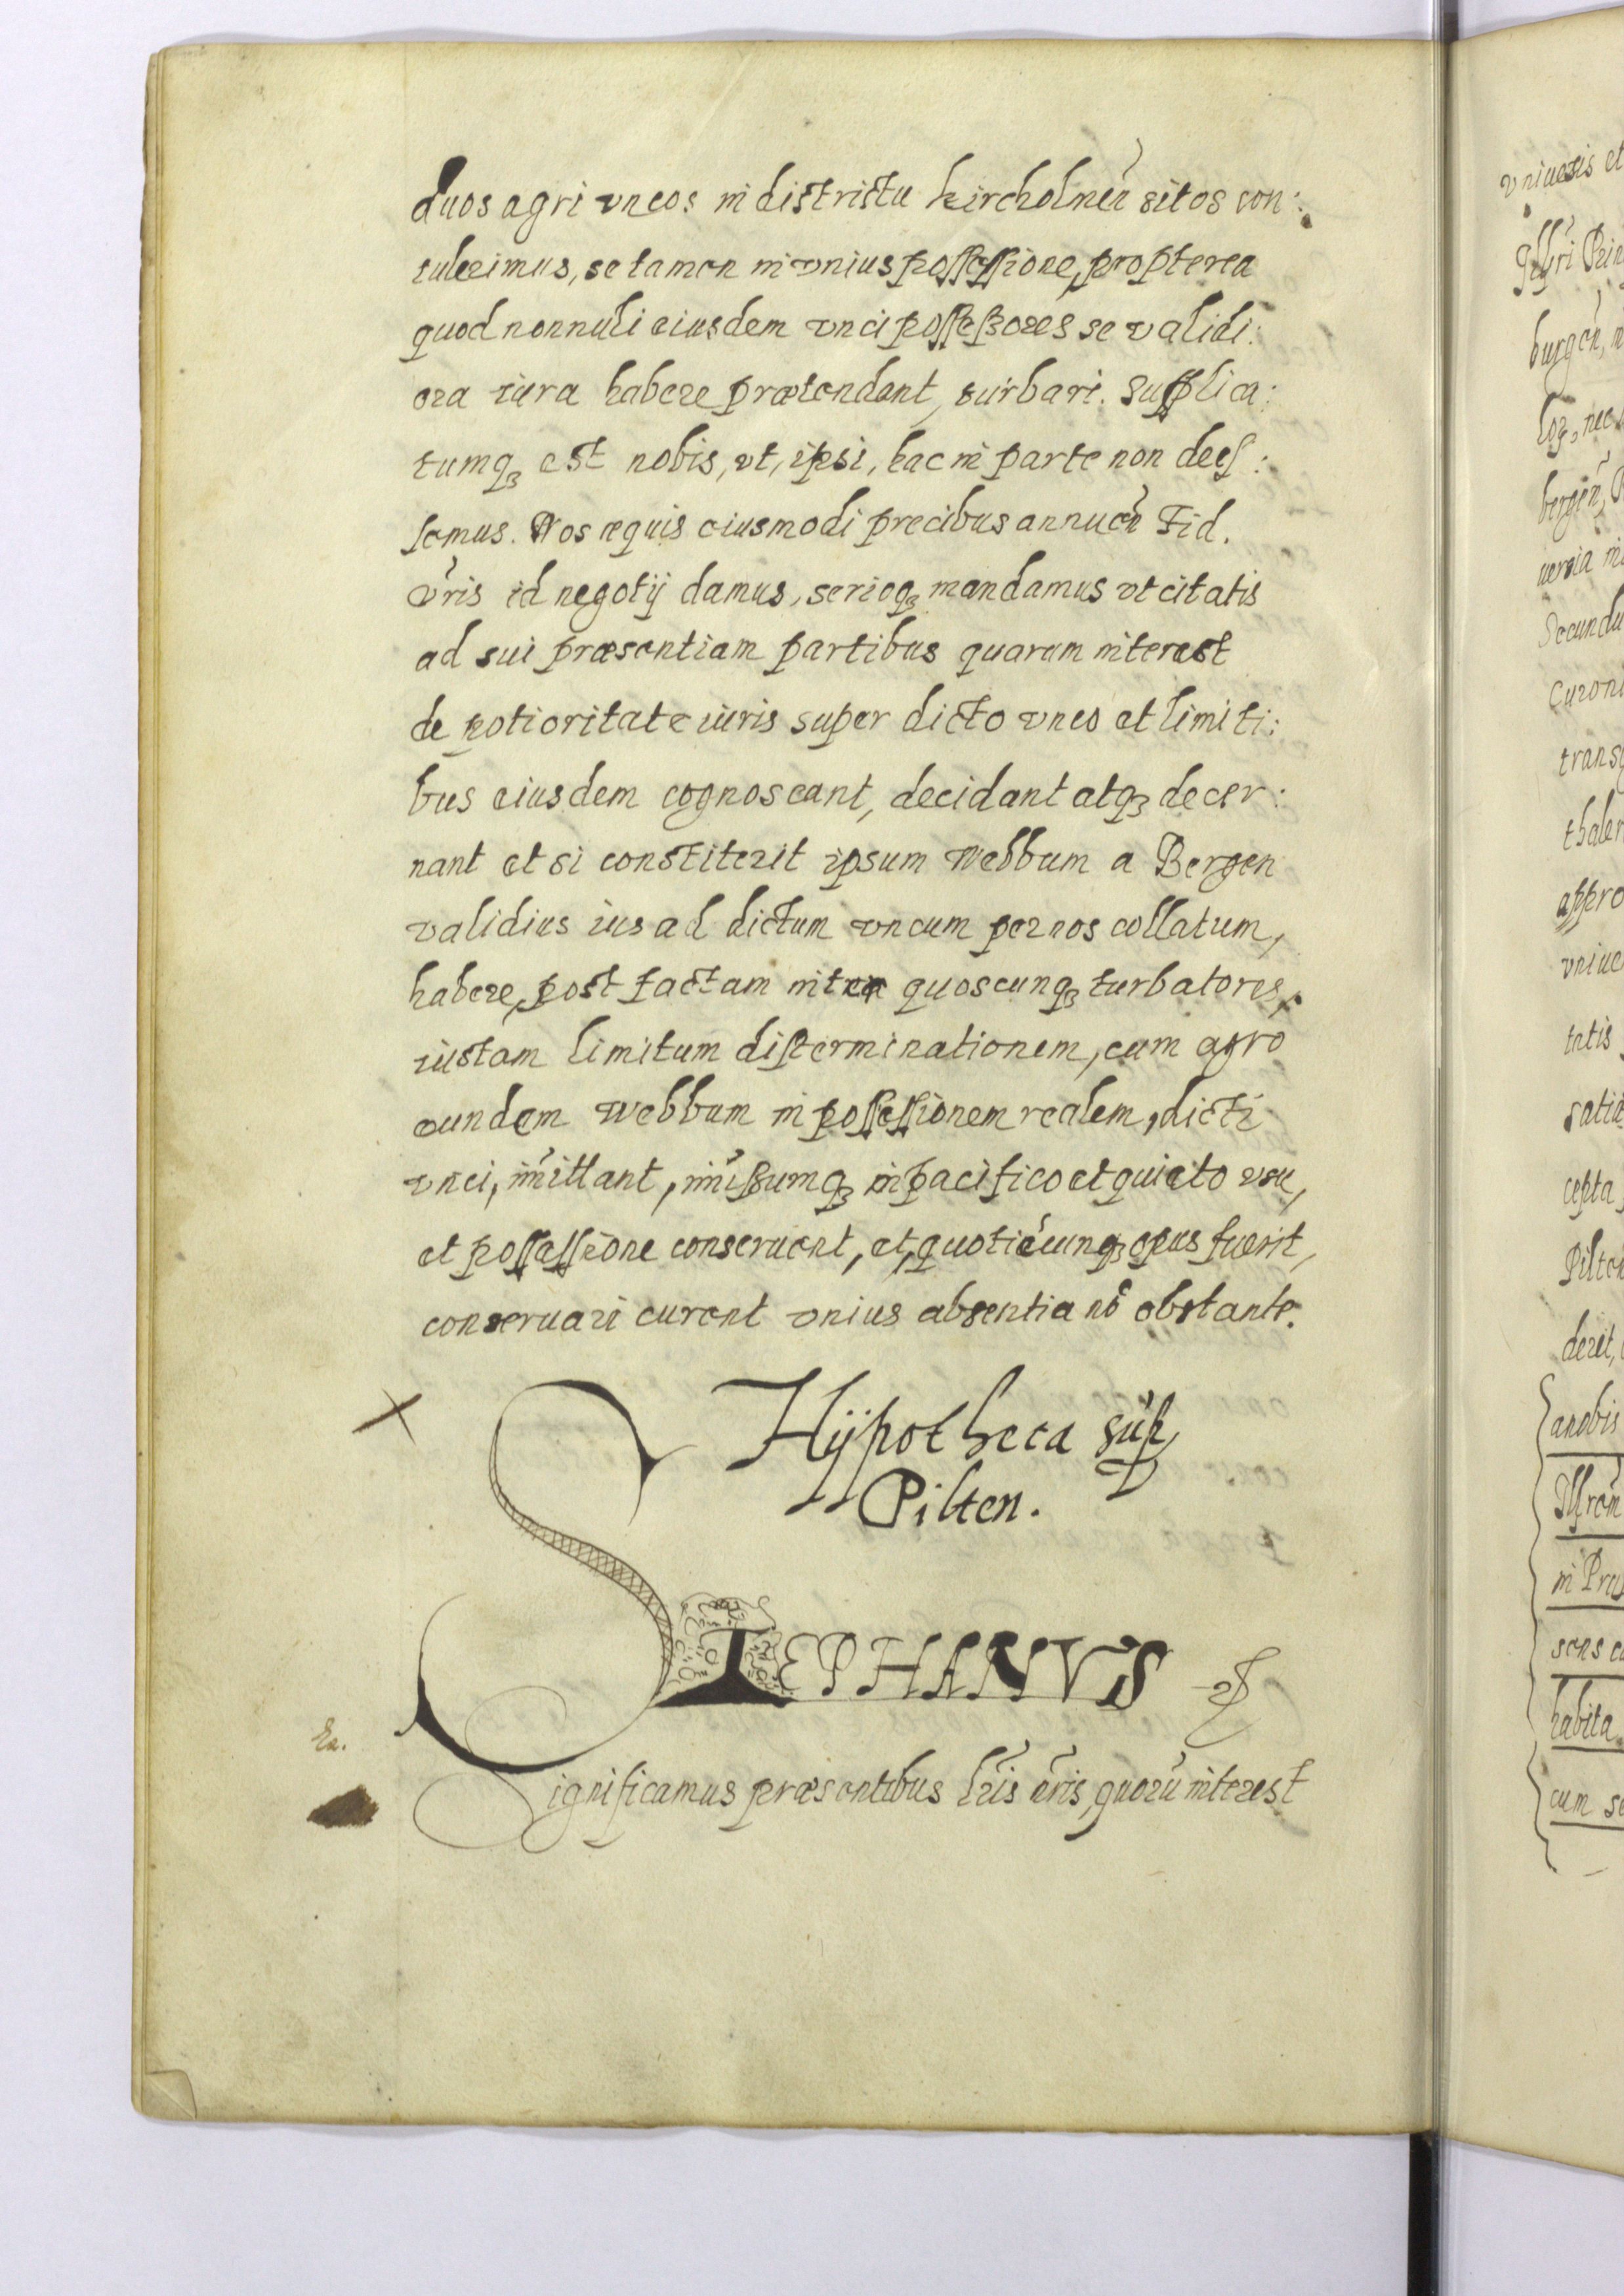 duos agri vncos in districtu kircholmeñ sitos con:
tulerimus, se tamen in vnius possessione, propterea
quod nonnuli eiusdem vnci possessores se validi:
ora iura habere prætendant, turbari. Supplica:
tumq₃ est nobis, vt, ipsi, hac in parte non dees:
semus. Nos æquis eiusmodi precibus annueñ Fid.
v̄ris id negotij damus, serioq₃ mandamus vt citatis
ad sui præsentiam partibus quarum interest
de potioritate iuris super dicto vnco et limiti:
bus eiusdem cognoscant, decidant atq₃ decer:
nant et si constiterit ipsum Webbum a Bergen
validius ius ad dictum vncum per nos collatum,
habere, post factam inter quoscunq₃ turbatores,
iustam limitum disterminationem, cum agro
eundem Webbum in possessionem realem, dicti
vnci, im̄ittant, im̄issumq₃ in pacifico et quieto vsu,
et possessione conseruent, et, quotiescunq₃ opus fuerit,
conseruari curent vnius absentia nō obstante.
Hÿpotheca sup
Pilten.
STEPHANVS
Ea.
Significamus præsentibus l̄ris n̄ris, quorū interest
vniuersis et
burgeñ, in
nec
bergeñ,
Secundu
Curoni
trans
thaler
appro
vniue
tatis
satis
cepta
Pilten
deret,
anobis
in Prus
sens cu
habita
cum se